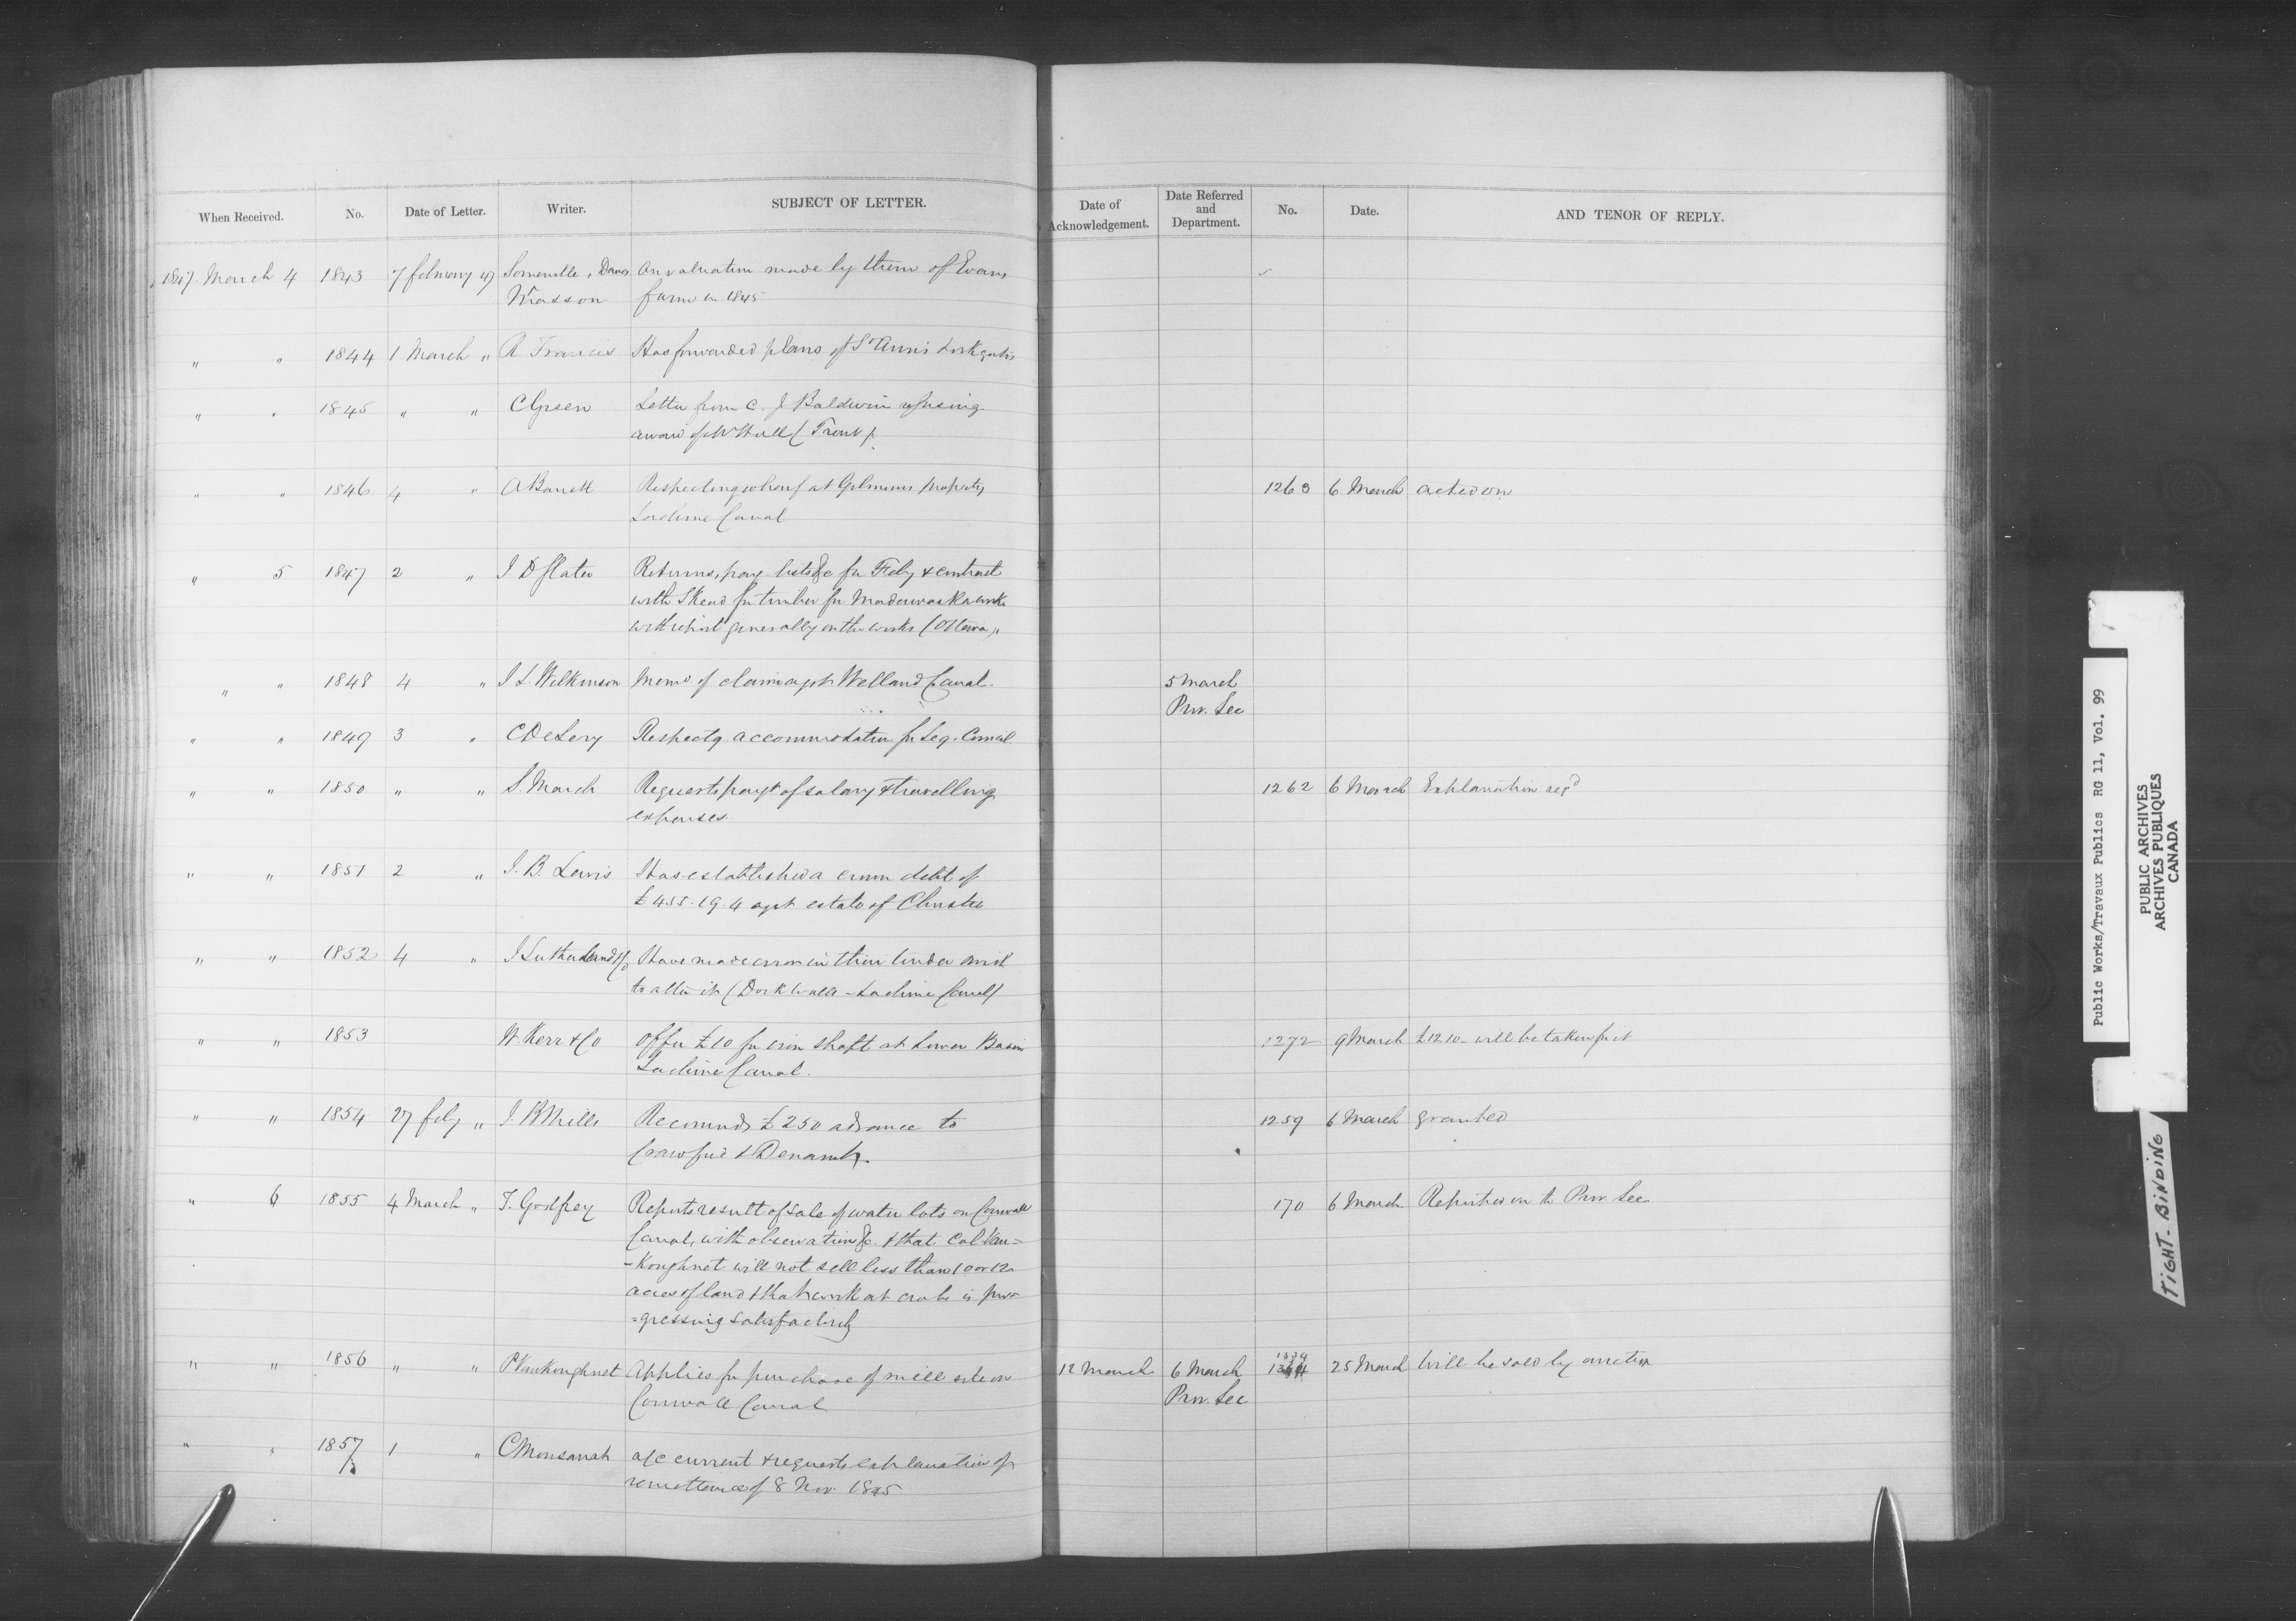 When Received. No. Date of Letter. Writer. SUBJECT OF LETTER. Date of Acknowledgement. Date Referred and Department. No. Date. AND TENOR OF REPLY.
1847 March 4 1843 7 february 47 Somerville, Davis On valuation made by them of Evans
Wasson farm in 1845
" " 1844 1 March " R Francis Has forwarded plans of St Anns Lock gates
" " 1845 " " C Green Letter from C. J Baldwin refusing
award of W Hall ( Trent ).
" " 1846 4 " A Barrett Respecting wharf at Gilmours property 1263 6 March acted on
Lachine Canal
" 5 1847 2 " J D Slater Returns, pay lists &c for Feby & contract
with Skead for timber for Madawaska works
with report generally on the works (Ottawa).
" " 1848 4 " J L. Wilkinson Memo of claim agst Welland Canal. 5 March
Prov. Sec
" " 1849 3 " C DeLery Respectg accommodation for Leg. Council
" " 1850 " " S. March Requests payt of salary & travelling 1262 6 March Explanation reqd
expenses.
" " 1851 2 " J. B. Lewis Has established a crown debt of
£455.19.4 agst estate of Christie
" " 1852 4 " J Sutherland & Co Have made error in their tender wish
to alter it (Dock Walls - Lachine Canal)
" " 1853 W. Kerr & Co Offer £10 for iron shaft at Lower Basin 1272 9 March £12.10 - will be taken for it
Lachine Canal.
" " 1854 27 feby " J. B Mills Recommds £250 advance to 1259 6 March granted
Crawford &
" 6 1855 4 March " T. Godfrey Reports result of sale of water lots on Cornwall 170 6 March Reported on to Prov. Sec
Canal, with observations &c. & that Col Van=
-Koughnet will not sell less than 10 or 12
acres of land & that work at crabs is pro=
=gressing satisfactorily
" " 1856 " " P VanKoughnet Applies for purchase of mill site on 12 March 6 March 1334 25 March Will be sold by auction
Cornwall Canal Prov. Sec
" " 1857 1 " C Monsarrat a/c current & requests explanation of
remittance of 8 Nov 1845
Public Works/Travaux Publics RG 11, Vol. 99
PUBLIC ARCHIVES
ARCHIVES PUBLIQUES
CANADA
TIGHT-BINDING